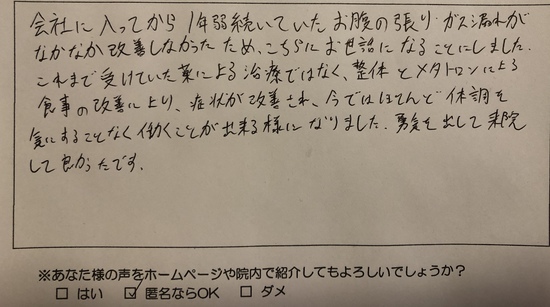 会社に入ってから1年弱続いていたお腹の張り・ガス漏れが
なかなか改善しなかったため、こちらにお世話になることにしました。
これまで受けていた薬による治療ではなく、整体とメタトロンによる
食事の改善により、症状が改善され、今ではほとんど体調を
気にすることなく働くことが出来る様になりました。勇気を出して来院
して良かったです。
※あなた様の声をホームページや院内で紹介してもよろしいでしょうか？
□ はい ☑ 匿名ならOK □ ダメ